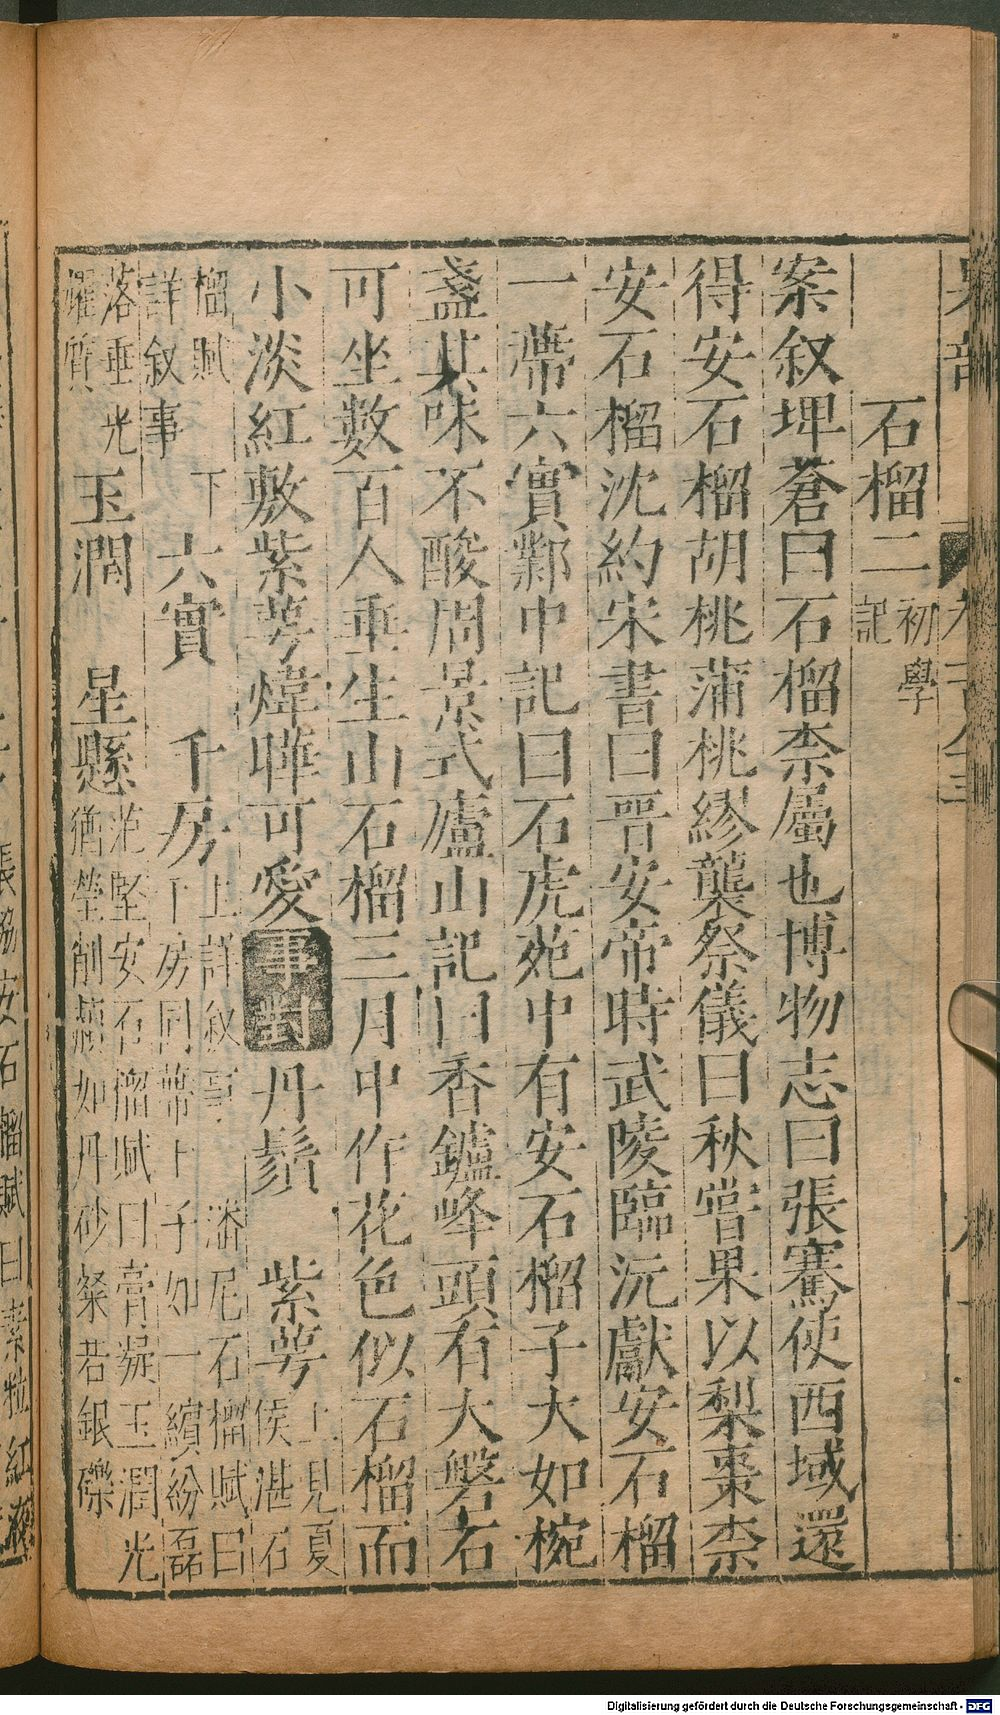 石榴二初學記
案叙埤蒼曰石榴柰屬也博物志曰張騫使西域還
得安石榴胡桃蒲桃繆襲祭儀曰秋嘗果以梨棗柰
安石榴沈約宋書曰晉安帝時武陵臨沅獻安石榴
一蔕六實鄴中記曰石虎苑中有安石榴子大如椀
盞其味不酸周景式廬山記曰香鑪峰頭有大磐石
可坐數百人垂生山石榴三月中作花色似石榴而
小淡紅敷紫萼煒曄可愛事對丹鬚 紫萼上見夏侯湛石
榴賦下詳叙事 六實 千房上詳叙事潘尼石榴賦曰千房同蔕十子如一繽紛磊
落垂光耀質 玉潤 星懸范堅安石榴賦曰膏凝玉潤光猶瑩削如丹砂粲若銀礫
張協安石榴賦曰素粒紅液
Digitalisierung gefördert durch die Deutsche Forschungsgemeinschaft - DFG